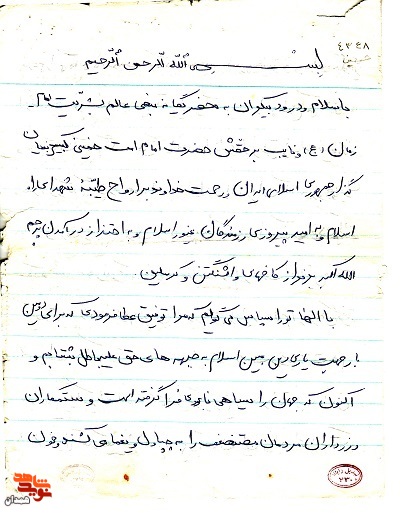 ۴۳۴۸
بسم الله الرحمن الرحیم
باسلام و درود بیکران به محضر یگانه منجی عالم بشریت امام
زمان (عج) و نایب برحقش حضرت امام امت خمینی کبیر بنیان
گذار جمهوری اسلامی ایران و رحمت خداوند بر ارواح طیبه شهدای راه
اسلام و به امید پیروزی رزمندگان غیور اسلام و به اهتزاز در آمدن پرچم
الله اکبر بر فراز کاخهای واشنگتن و کرملین.
با الها تو را سپاس می گویم که مرا توفیق عطا فرمودی که برای دومین
بار جهت یاری دین مبین اسلام به جبهه های حق علیه باطل بشتابم و
اکنون که جهان را سیاهی نابودی فرا گرفته است و ستمگران
و زرداران مردمان مستضعف را به چپاول و یغما می کشند و خون
نوید شاهد
همدان
۲۳۰